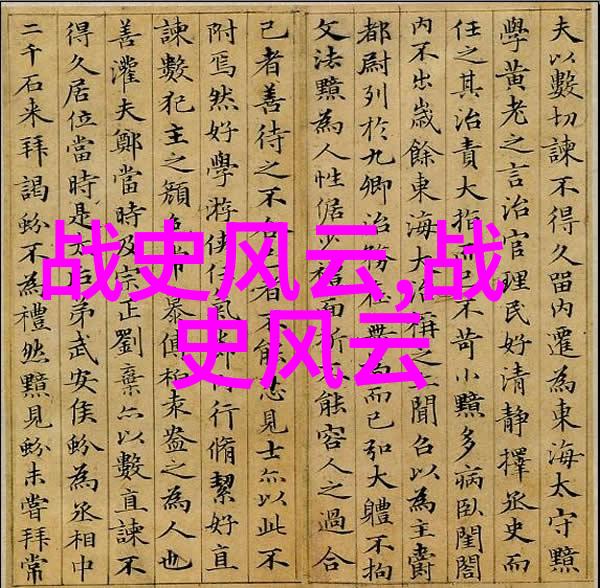 战史风云,战
史风云
夫以數切諫不得久留內遷為東海太守黯
學黃老之言治官理民好清靜擇丞史而
任之其治責大指而已不苛小黯多病臥閨閤
內不出歲餘東海大治稱之上聞召以為主爵
都尉列於九卿治務在無為而已弘大體不拘
文法黯為人性倨少禮面折不能容人之過合
己者善待之不合己者不能忍見士亦以此不
附焉然好學游俠任氣節內行脩絜好直
諫數犯主之顏色常慕傅柏袁盎之為人也
善灌夫鄭當時及宗正劉棄亦以數直諫不
得久居位當時是太后弟武安侯蚡為丞相中
二千石来拜謁蚡不為禮然黯見蚡未嘗拜常